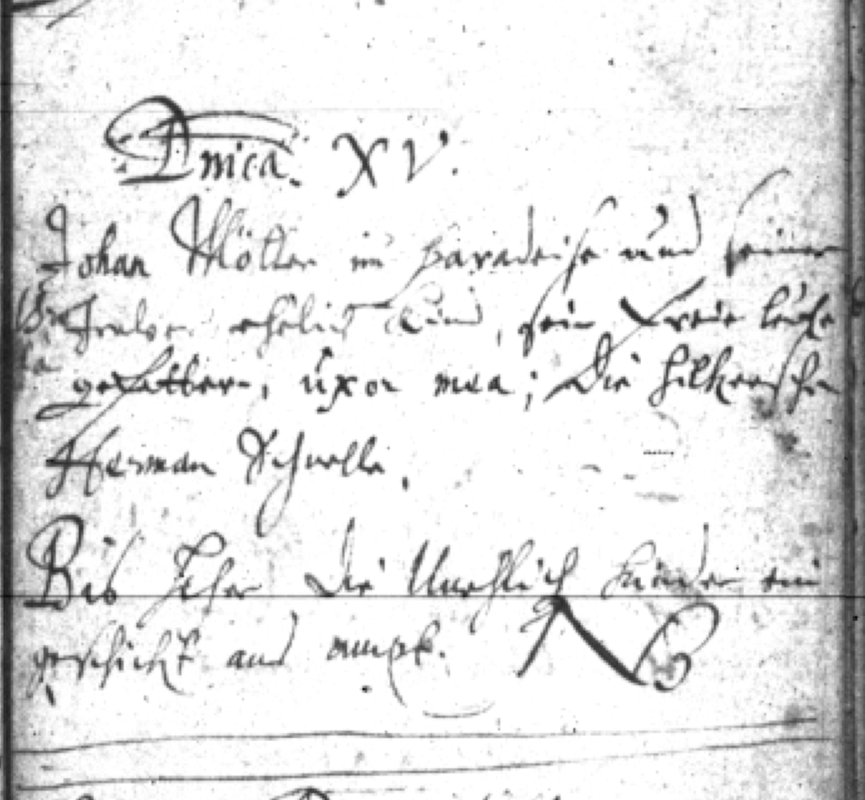 Dnica. XV.
Johan Möller im paradeise und seiner
ehelich Kind, sein freie leuthe
gefatter, uxor mea; Die Hilkersche
Herman Schnelle,
Bis hiher die Unehlich kinder ein
geschickt aus ampt. NB